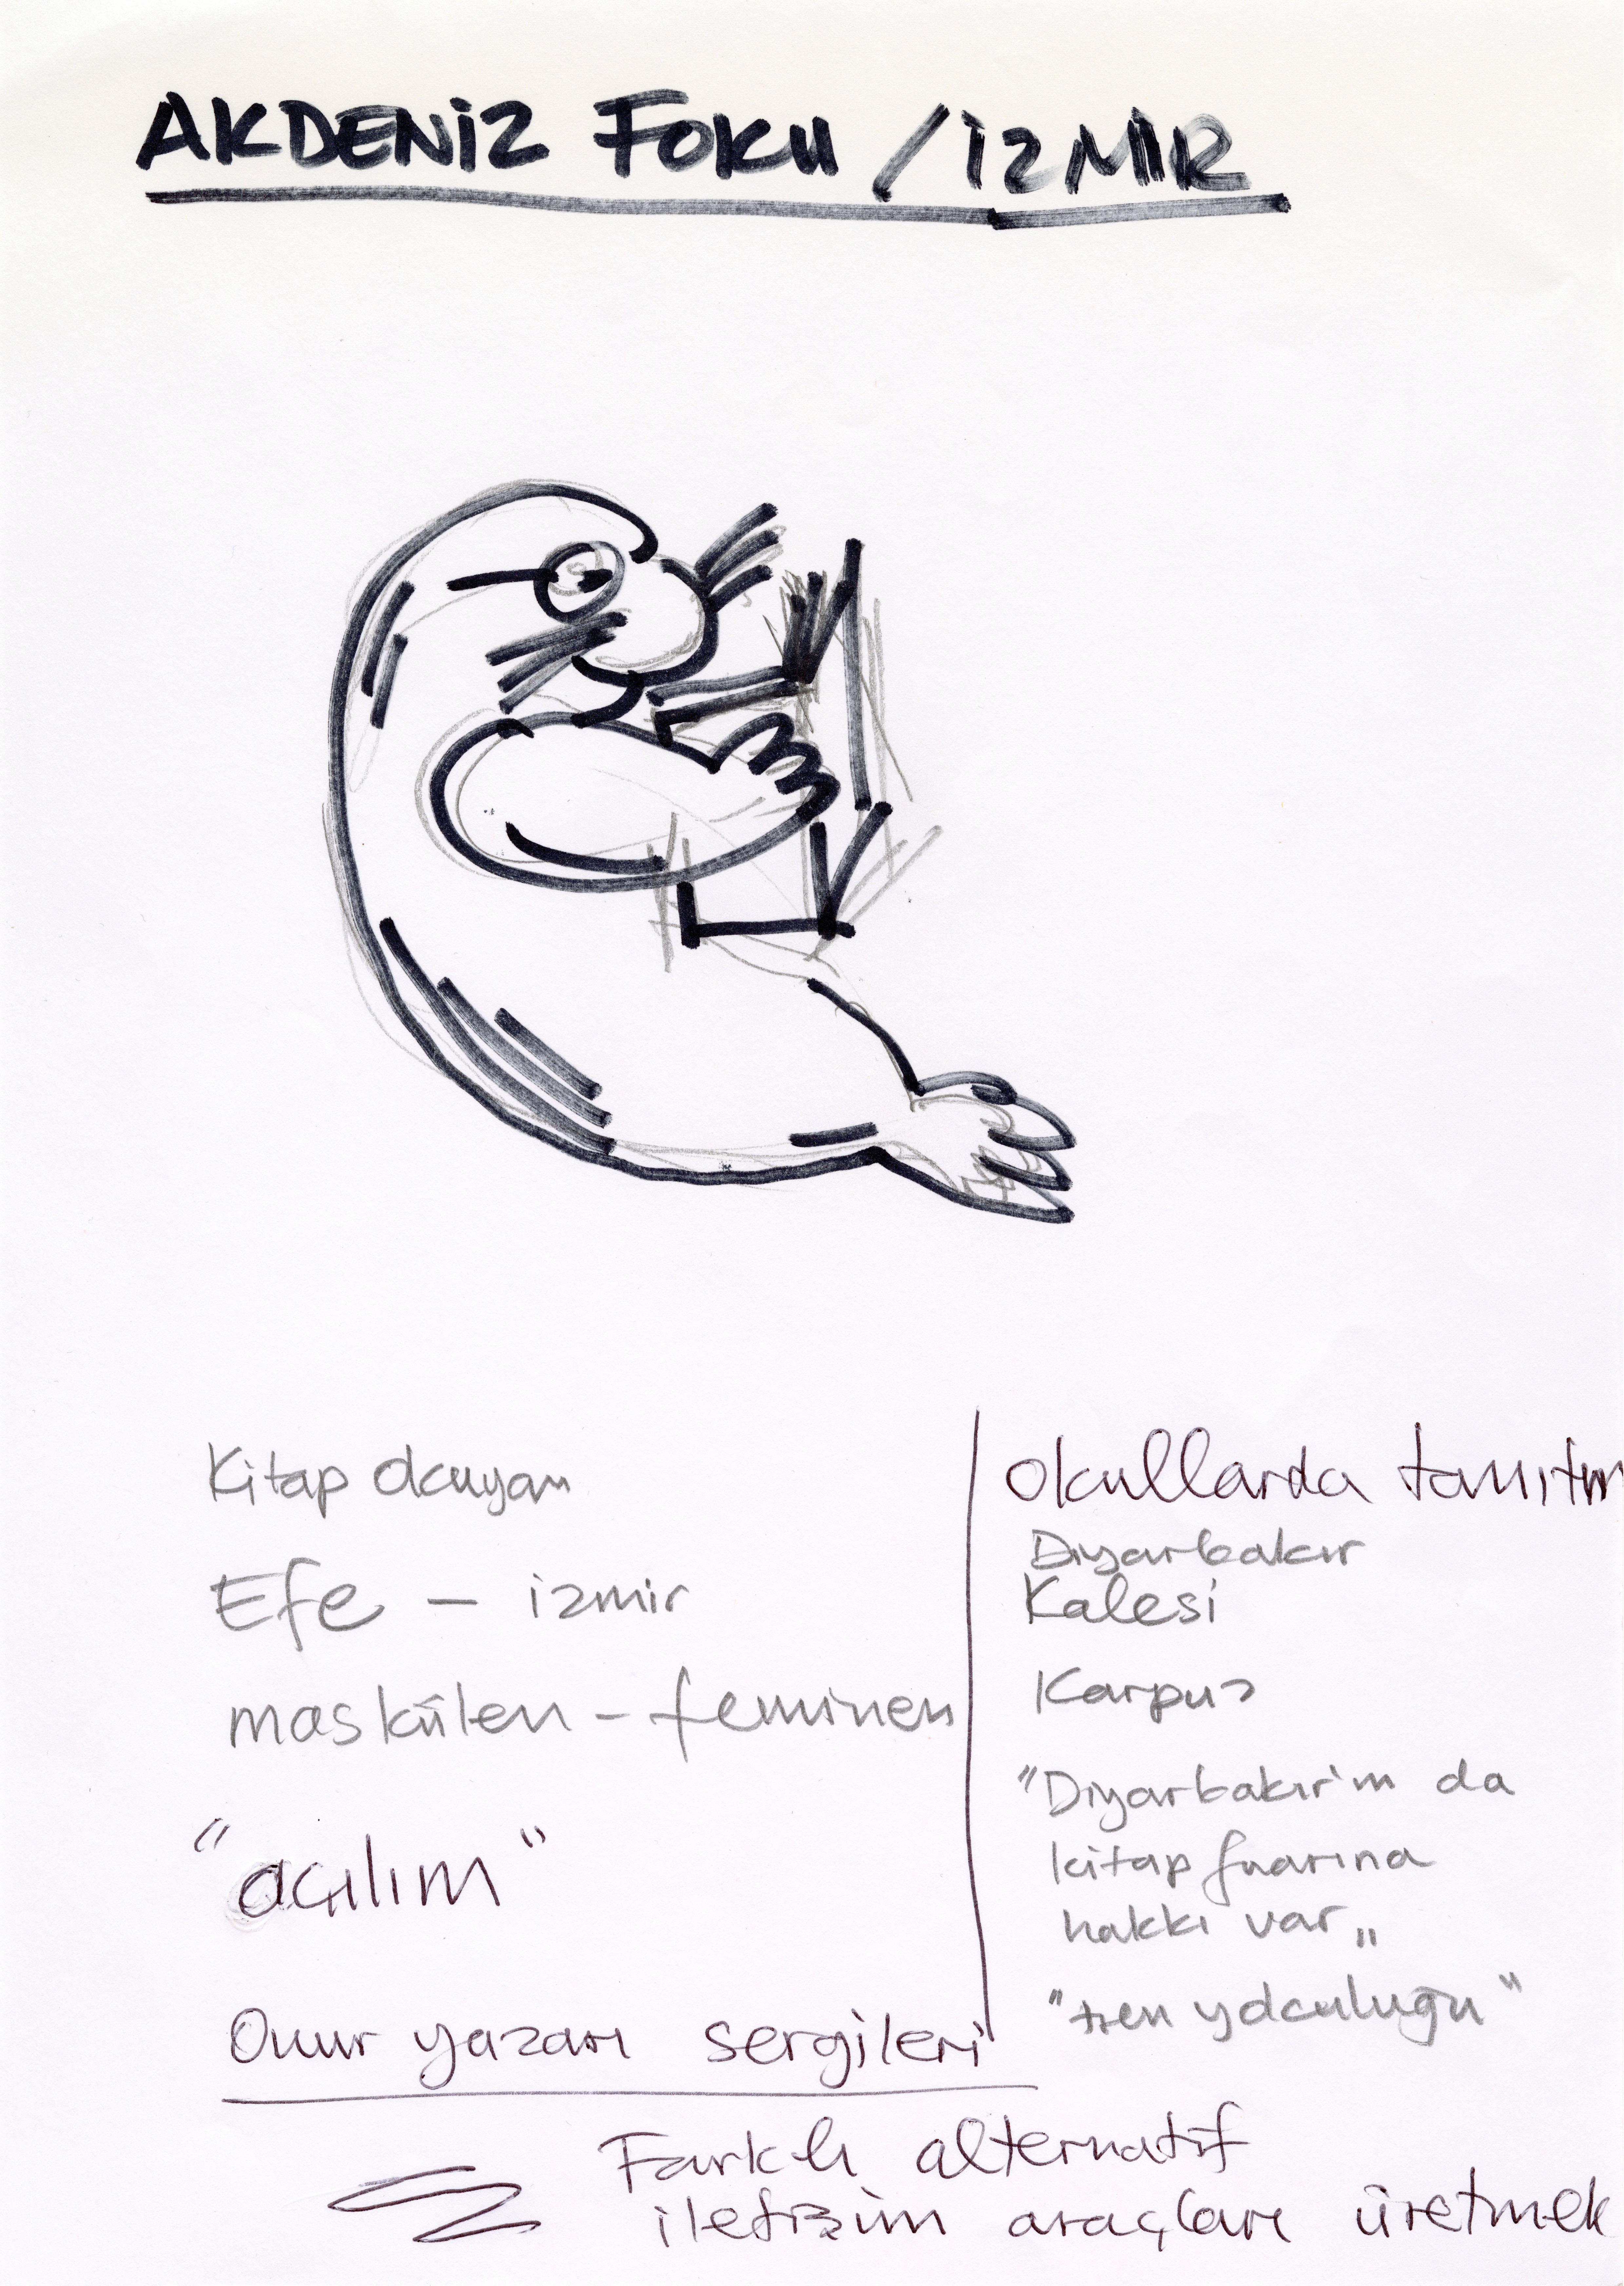 AKDENİZ FOKU / İZMİR
Kitap okuyan
Efe – izmir
maskülen – feminen
"açılım"
Onur yazarı sergileri
okullarda tanıtım
Diyarbakır
Kalesi
Karpuz
"Diyarbakır'ım da
kitap fuarına
hakkı var"
"tren yolculuğu"
Farklı alternatif
iletişim araçları üretmek